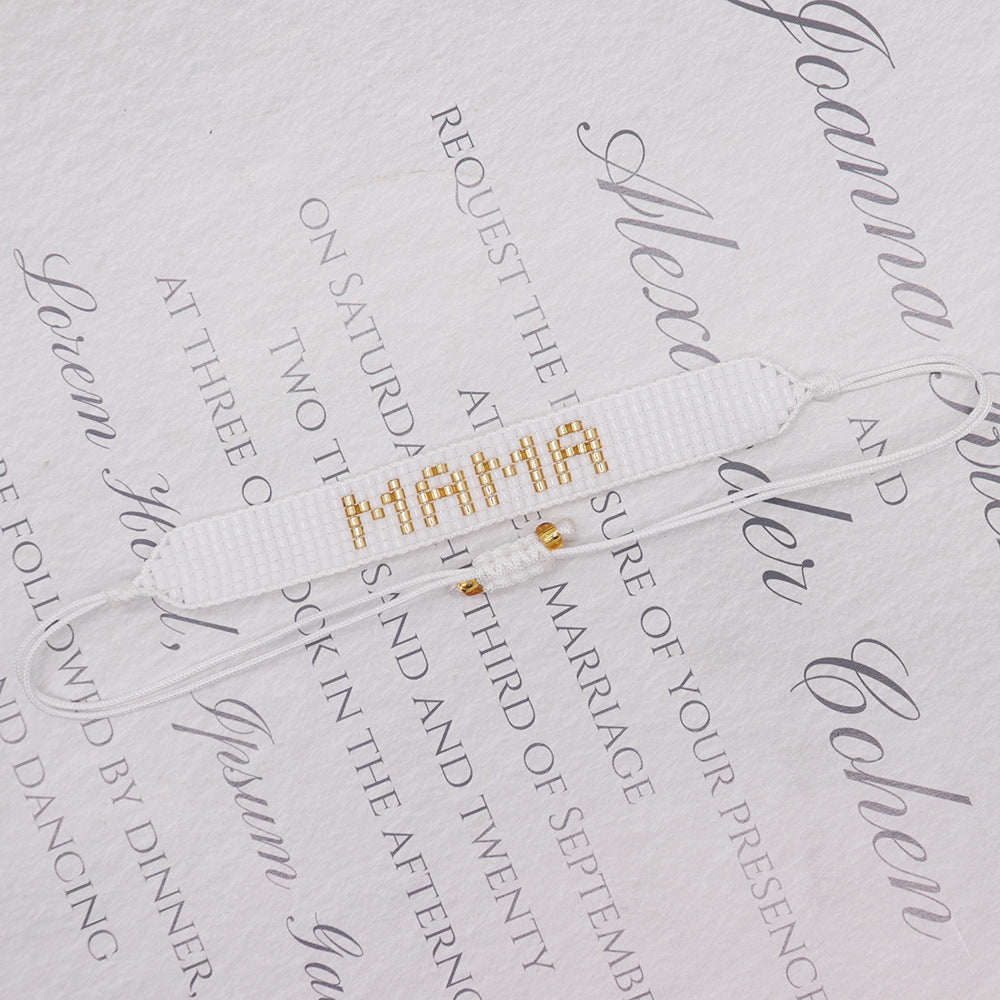 Joanna
Alexander Cohen
AND
REQUEST THE SURE OF YOUR PRESENCE
AT MARRIAGE
ON SATURDA THIRD OF SEPTEMBE
TWO TH SAND AND TWENTY
AT THREE OCK IN THE AFTERN
Lorem Hotel, Ipsum Ga
BE FOLLOWED BY DINNER,
ND DANCING
MAMA